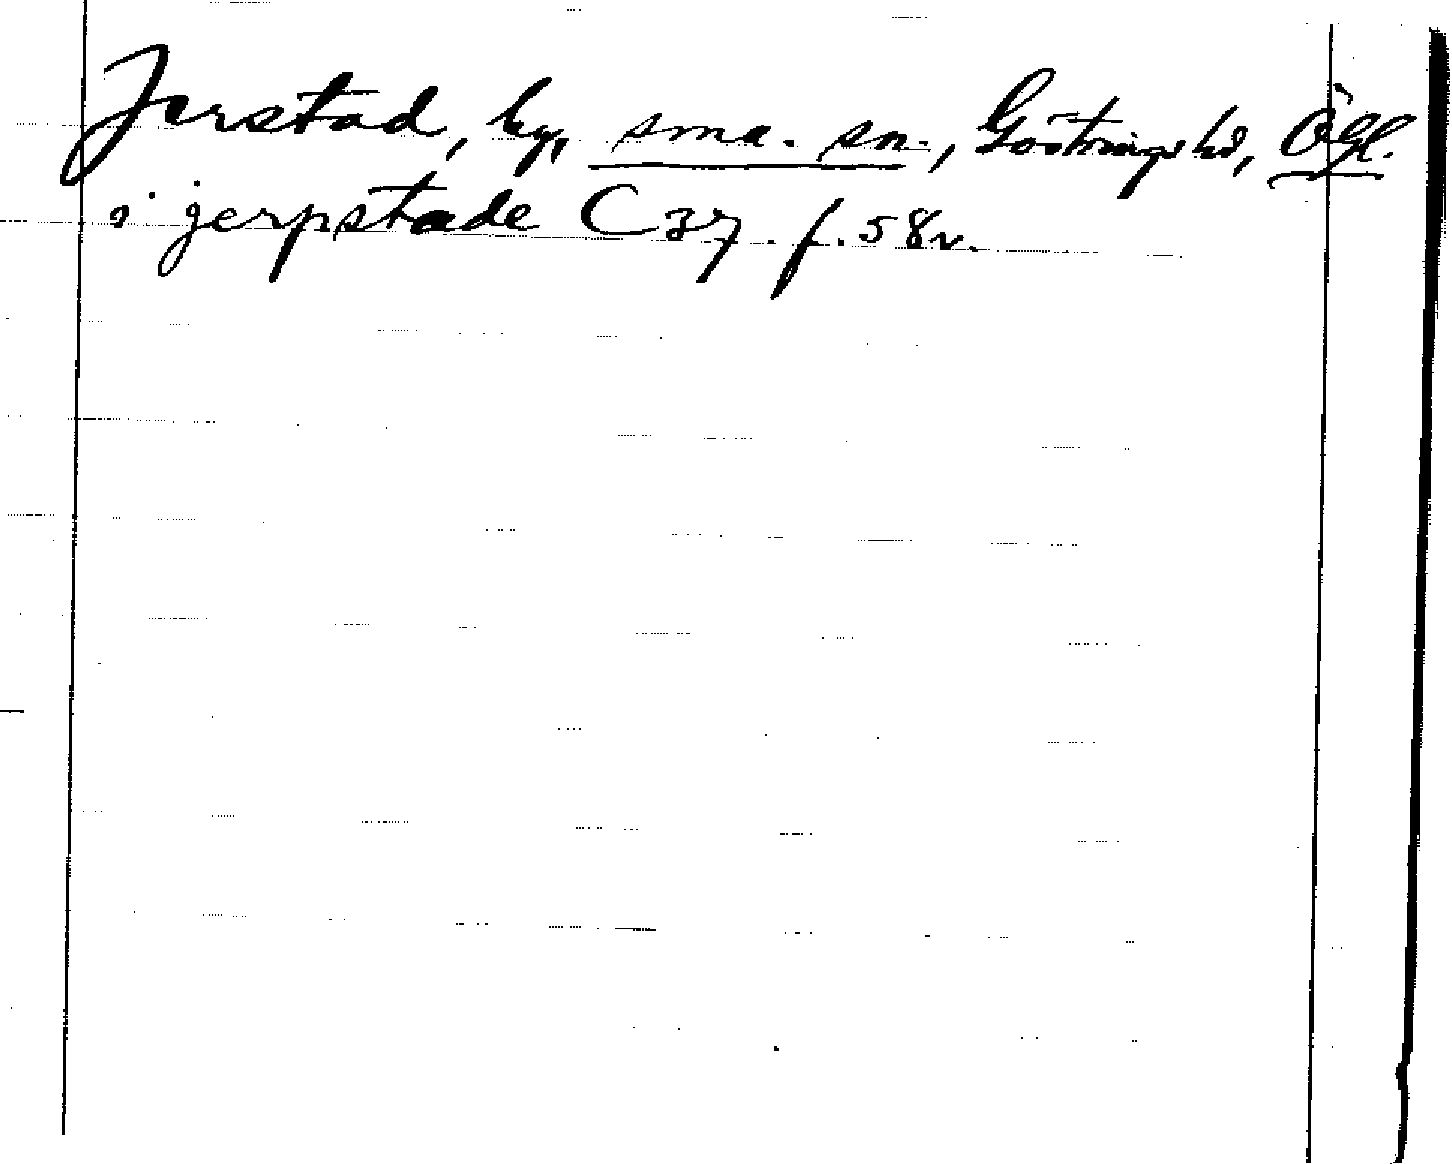 Jerstad, by, sma. sn., Göstrings hd, Ögl.
i jerpstade C 37. f. 58v.